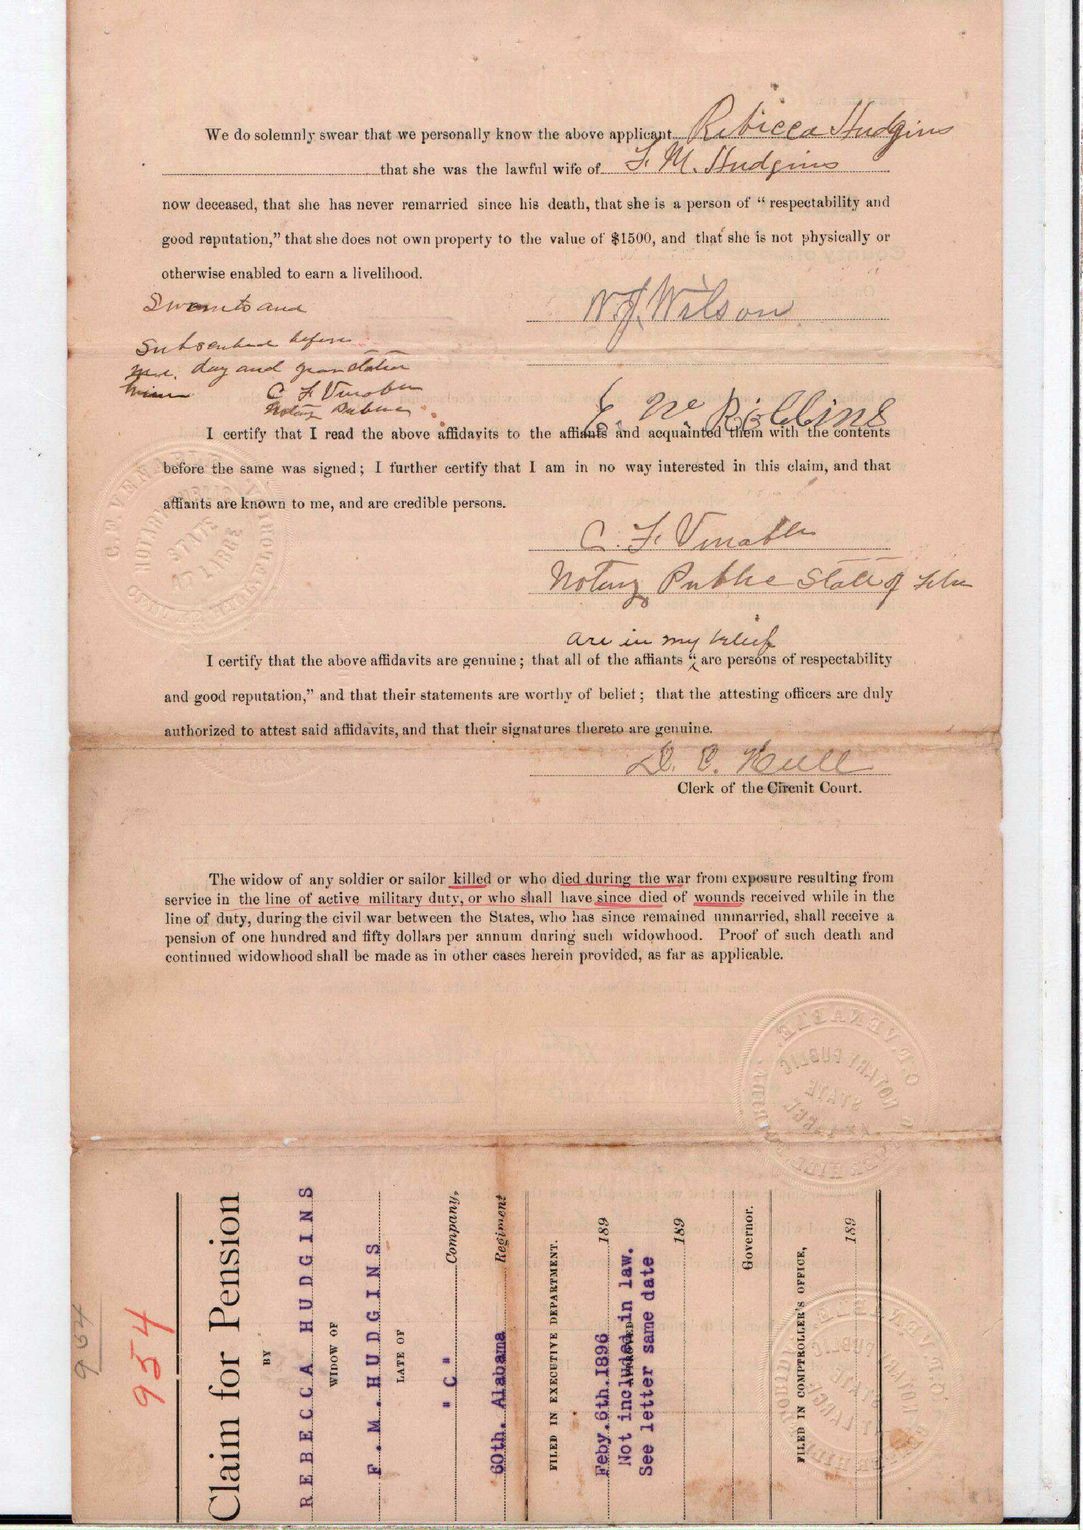 We do solemnly swear that we personally know the above applicant Rebicca Hudgins
that she was the lawful wife of F. M. Hudgins
now deceased, that she has never remarried since his death, that she is a person of “respectability and
good reputation,” that she does not own property to the value of $1500, and that she is not physically or
otherwise enabled to earn a livelihood.
Sworn to and
W. J. Wilson
Subscribed before
me. day and year
C F Venable
Notary Public
E. Mc Rollins
I certify that I read the above affidavits to the affiants and acquainted them with the contents
before the same was signed; I further certify that I am in no way interested in this claim, and that
affiants are known to me, and are credible persons.
C. F. VENABLE
NOTARY PUBLIC
STATE
AT LARGE
C. F. Venable
Notary Public State of Fla
are in my belief
I certify that the above affidavits are genuine; that all of the affiants “ are persons of respectability
and good reputation,” and that their statements are worthy of belief; that the attesting officers are duly
authorized to attest said affidavits, and that their signatures thereto are genuine.
Clerk of the Circuit Court.
The widow of any soldier or sailor killed or who died during the war from exposure resulting from
service in the line of active military duty, or who shall have since died of wounds received while in the
line of duty, during the civil war between the States, who has since remained unmarried, shall receive a
pension of one hundred and fifty dollars per annum during such widowhood. Proof of such death and
continued widowhood shall be made as in other cases herein provided, as far as applicable.
C. F. VENABLE.
NOTARY PUBLIC
STATE
AT LARGE
934
954
Claim for Pension
BY
REBECCA HUDGINS
WIDOW OF
F. M. HUDGINS
LATE OF
"C" Company,
60th. Alabama Regiment
FILED IN EXECUTIVE DEPARTMENT.
Feby.6th.1896 189
Not included in law.
APPROVED
See letter same date
189
Governor.
FILED IN COMPTROLLER'S OFFICE,
189